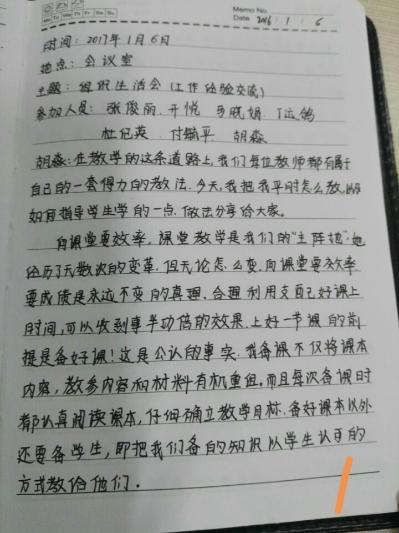 Memo No.
Mo Tu We Th Fr Sa Su
Date 2016 . 1 . 6
时间：2017年1月6日
地点：会议室
主题：组织生活会（工作经验交流）
参加人员：张俊丽 亓悦 马晓娟
杜纪英 付毓平 胡淼
胡淼：在教学的这条道路上，我们每位教师都有属于
自己的一套得力的教法．今天，我把我平时怎么教，以及
如何指导学生学的一点．做法分享给大家。
向课堂要效率．课堂教学是我们的"主阵地"．她
经历了无数次的变革．但无论怎么变，向课堂要效率
要成绩是永远不变的真理．合理利用支自己好课上
时间，可以收到事半功倍的效果．上好一节课的前
提是备好课！这是公认的事实．我备课不仅将课本
内容，教参内容和材料有机重组．而且每次备课时
都认真阅读课本，仔细确立教学目标．备好课本以外
还要备学生，即把我们备的知识以学生认可的
方式教给他们．